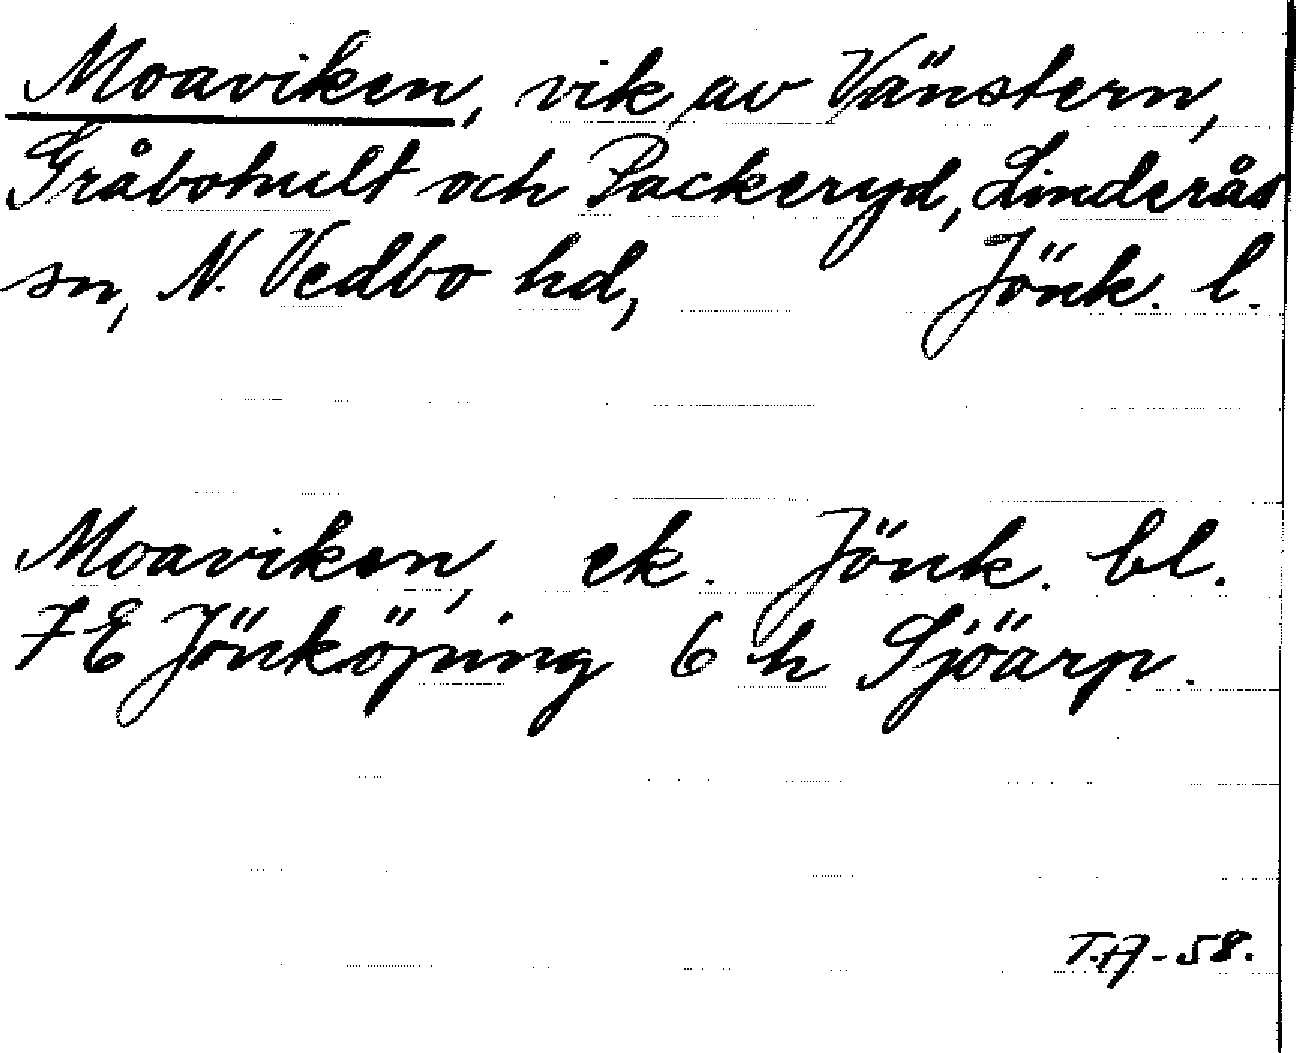 Moaviken, vik av Vänstern,
Gråbohult och Packeryd, Linderås
sn, N. Vedbo hd, Jönk. l.
Moaviken, ek. Jönk. bl.
7E Jönköping 6 h Sjöarp.
T.A-58.